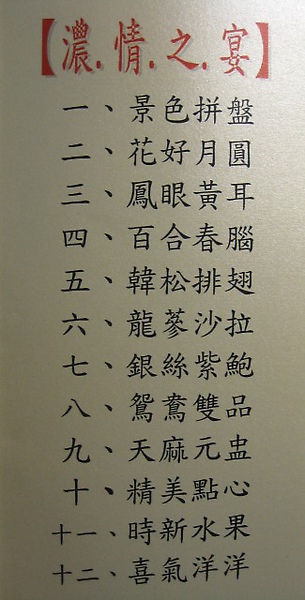 【濃.情.之.宴】
一、景色拼盤
二、花好月圓
三、鳳眼黃耳
四、百合春腦
五、韓松排翅
六、龍蔘沙拉
七、銀絲紫鮑
八、鴛鴦雙品
九、天麻元盅
十、精美點心
十一、時新水果
十二、喜氣洋洋